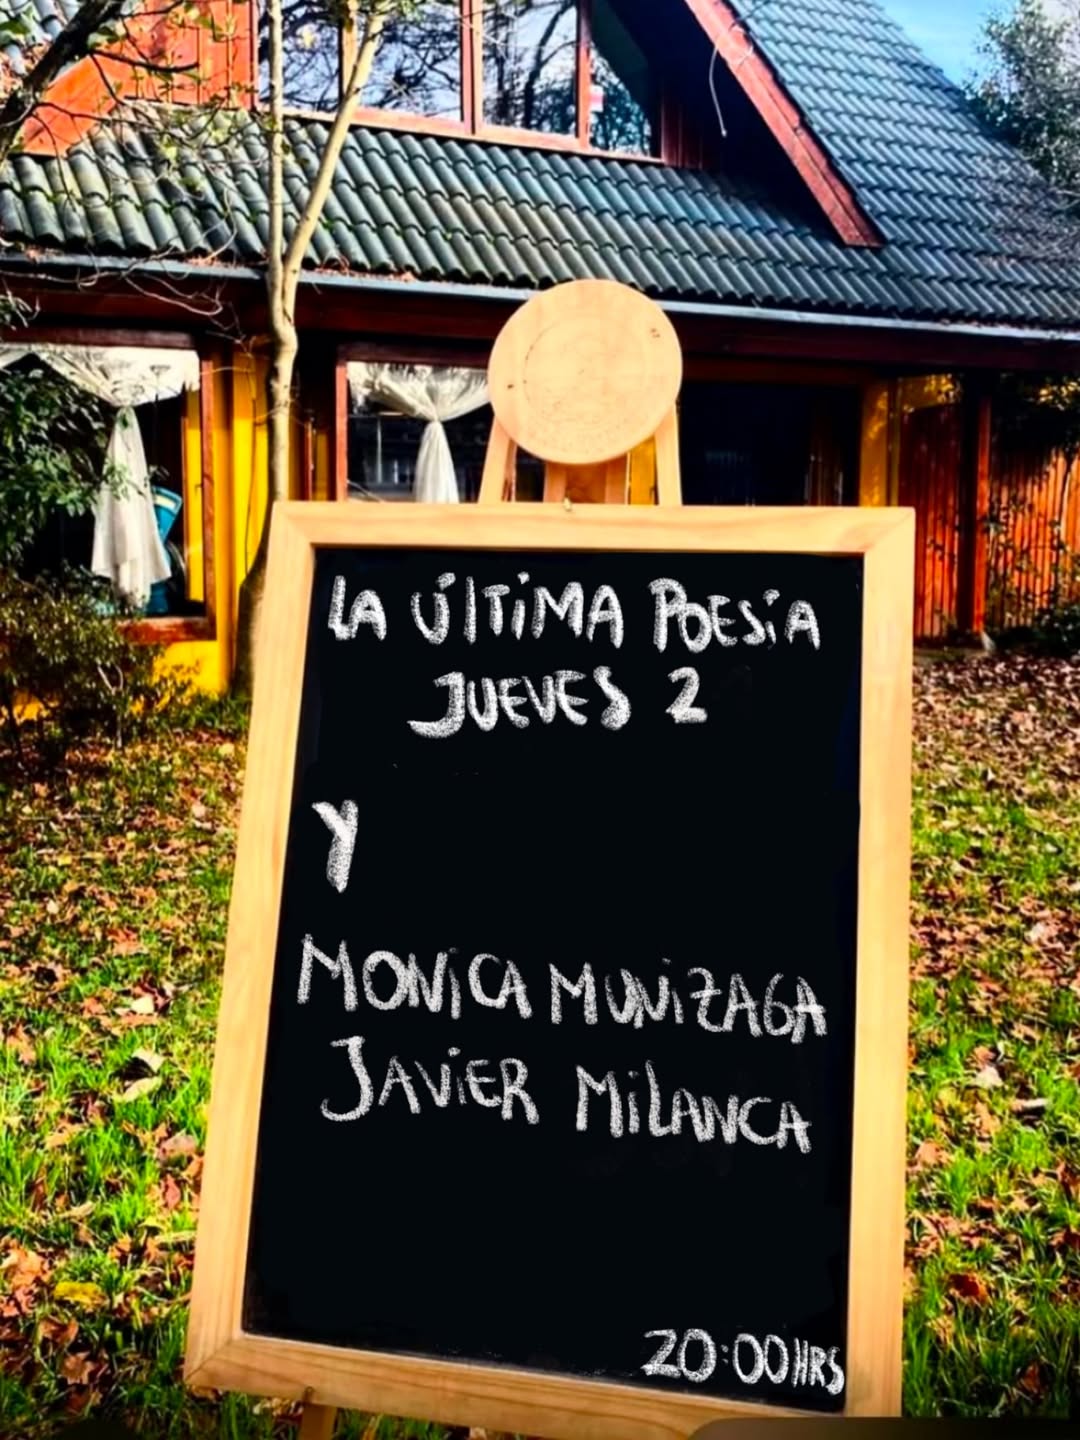 LA ÚLTIMA POESÍA
JUEVES 2
Y
MONICA MUNIZAGA
JAVIER MILANCA
20:00HRS